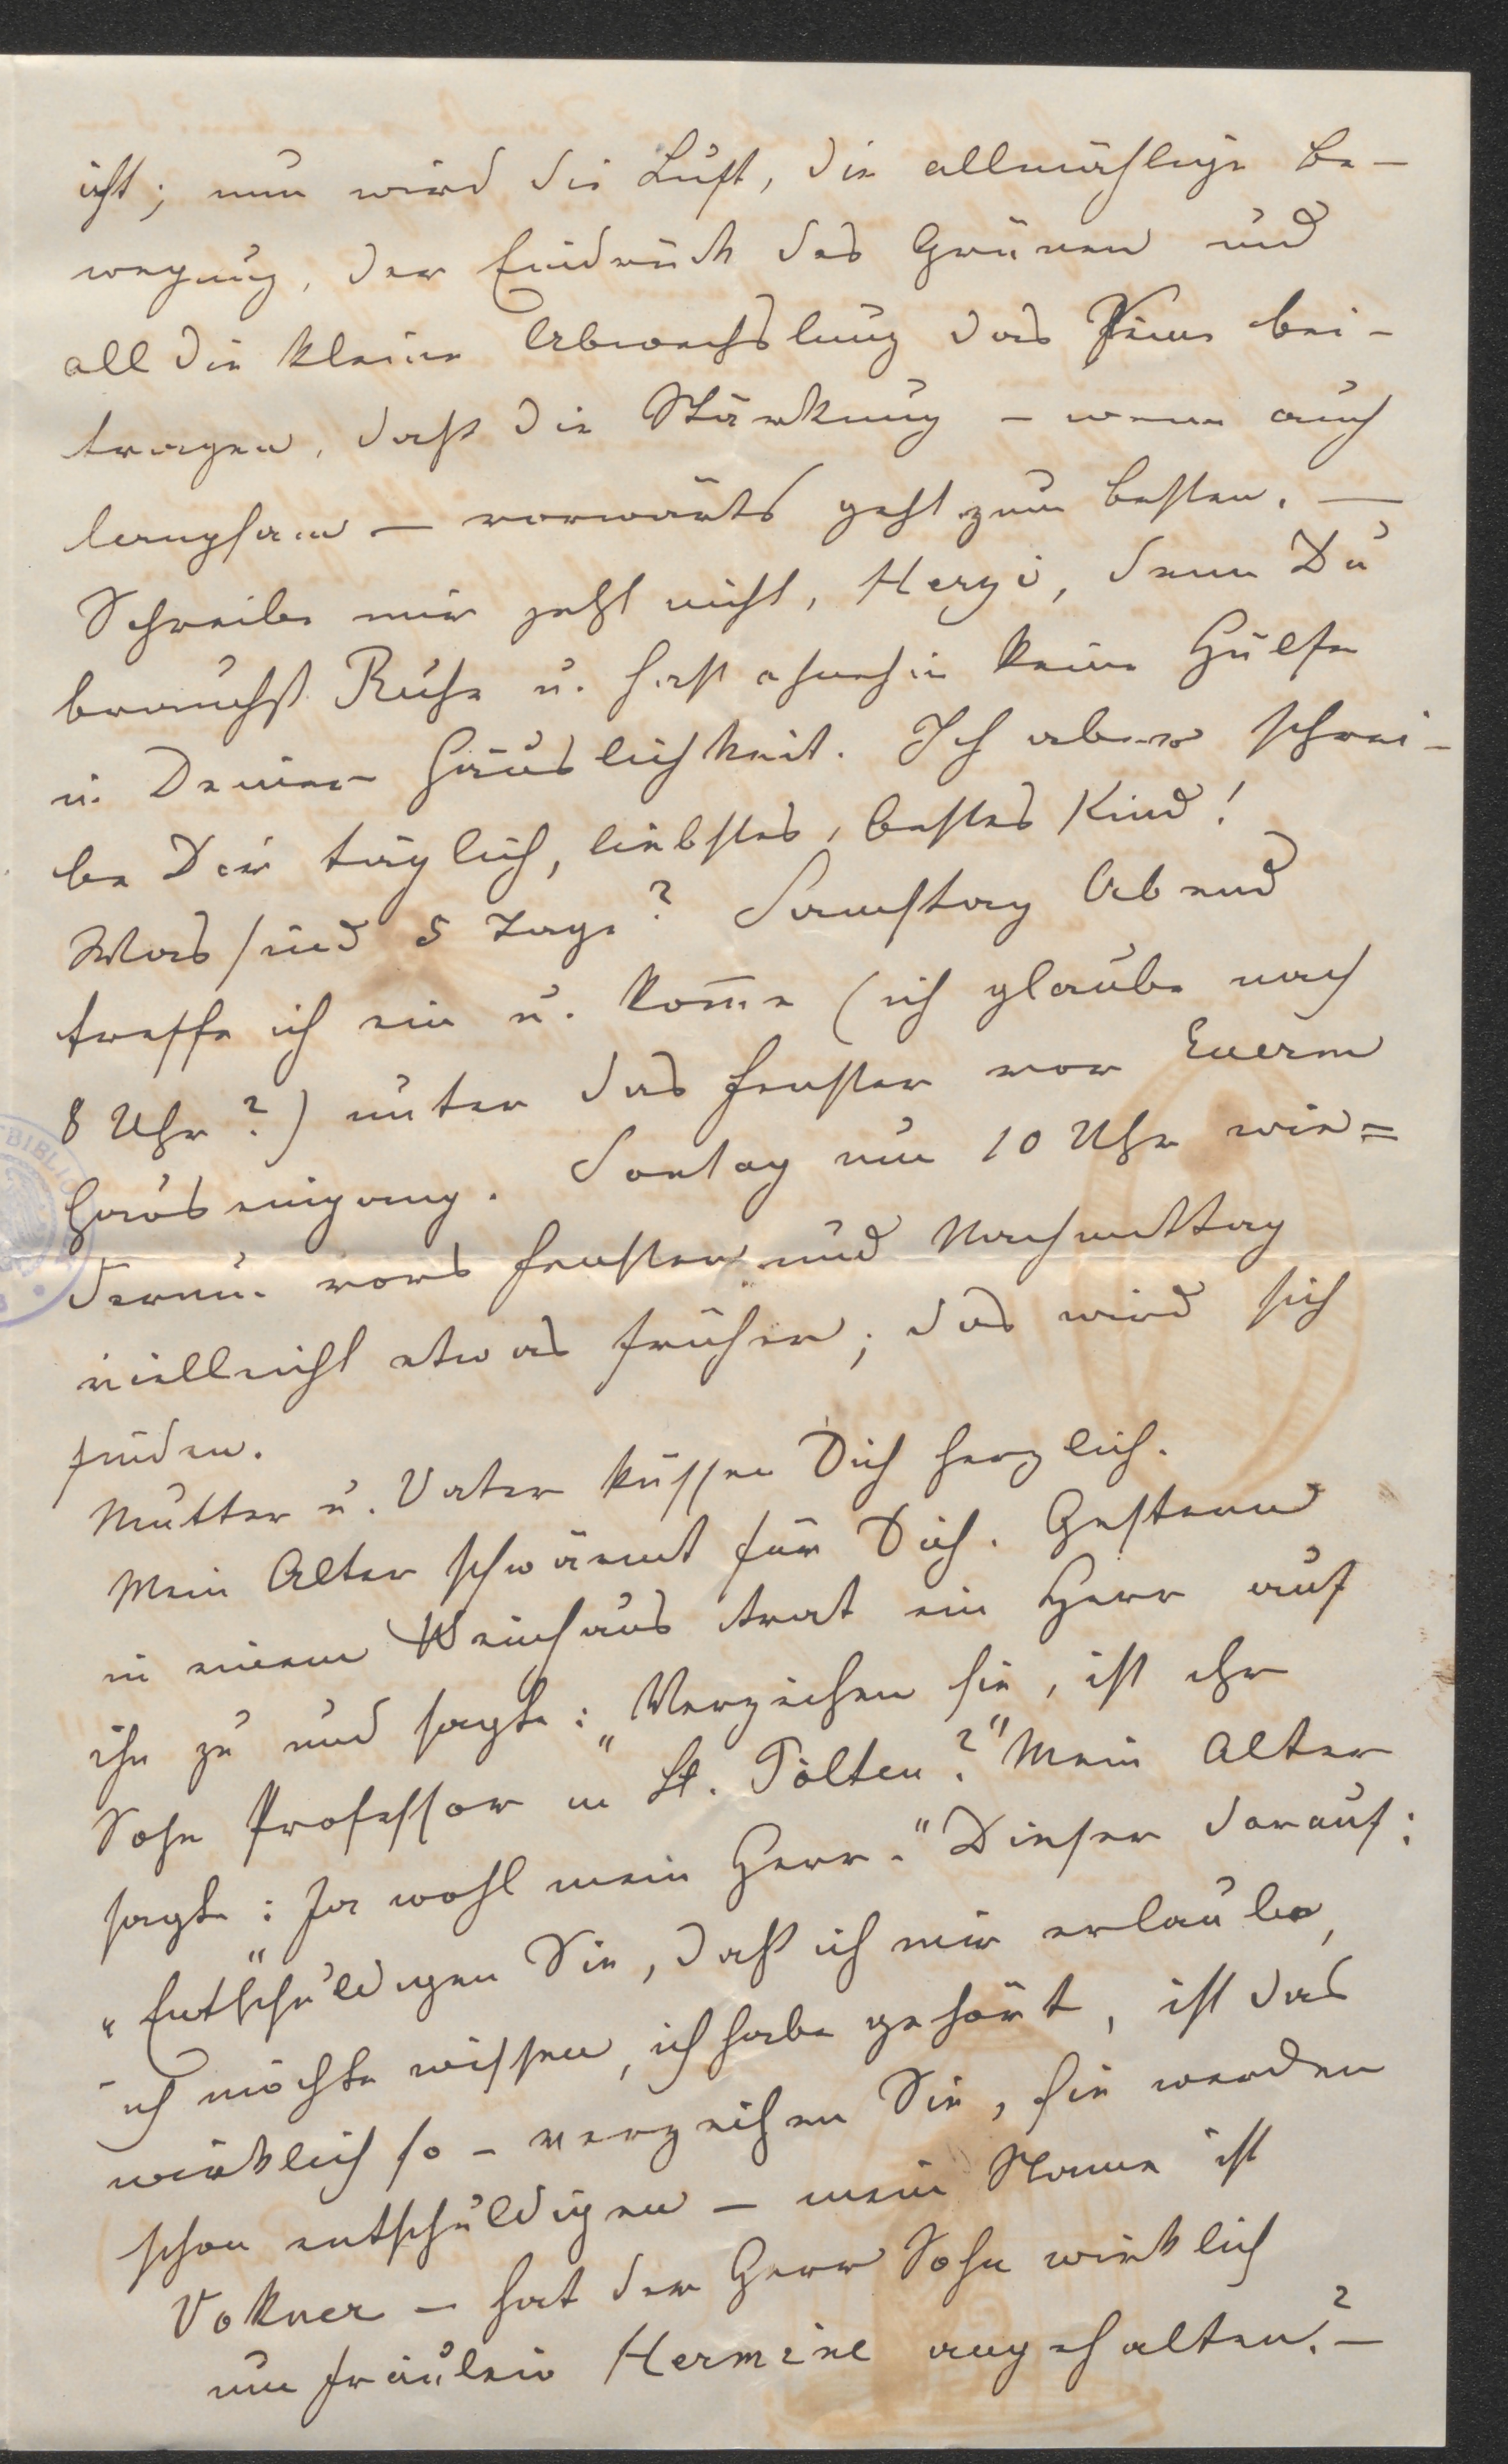 ist; nun wird die Luft, die allmählige Be-
wegung, der Eindruck des Grünen und
all die kleine Abwechslung das Ihre bei-
tragen, daß die Stärkung – wenn auch
langsam – vorwärts geht zum Besten. –
Schreibe mir jetzt nicht, Herzi, denn Du
brauchst Ruhe u. hast ohnehin keine Hülfe
in Deiner Häuslichkeit. Ich aber schrei-
be Dir täglich, liebstes, bestes Kind!
Was sind 5 Tage? Samstag Abend
treffe ich ein u. kom̄e (ich glaube nach
8 Uhr?) unter das Fenster vor Euerm
Hauseingang. Sontag um 10 Uhr wie=
derum vors Fenster und Nachmittag
vielleicht etwas früher; das wird sich
finden.
Mutter u. Vater küssen Dich herzlich.
Mein Alter schwärmt für Dich. Gestern
in einem Weinhaus trat ein Herr auf
ihn zu und sagte: „Verzeihen sie, ist ihr
Sohn Professor in St. Pölten?" Mein Alter
sagte: „Ja wohl mein Herr." Dieser darauf:
„Entschuldigen Sie, daß ich mir erlaube,
ich möchte wissen, ich habe gehört, ist das
wirklich so – verzeihen Sie, sie werden
schon entschuldigen – mein Name ist
Vokner – hat der Herr Sohn wirklich
um Fräulein Hermine angehalten? –